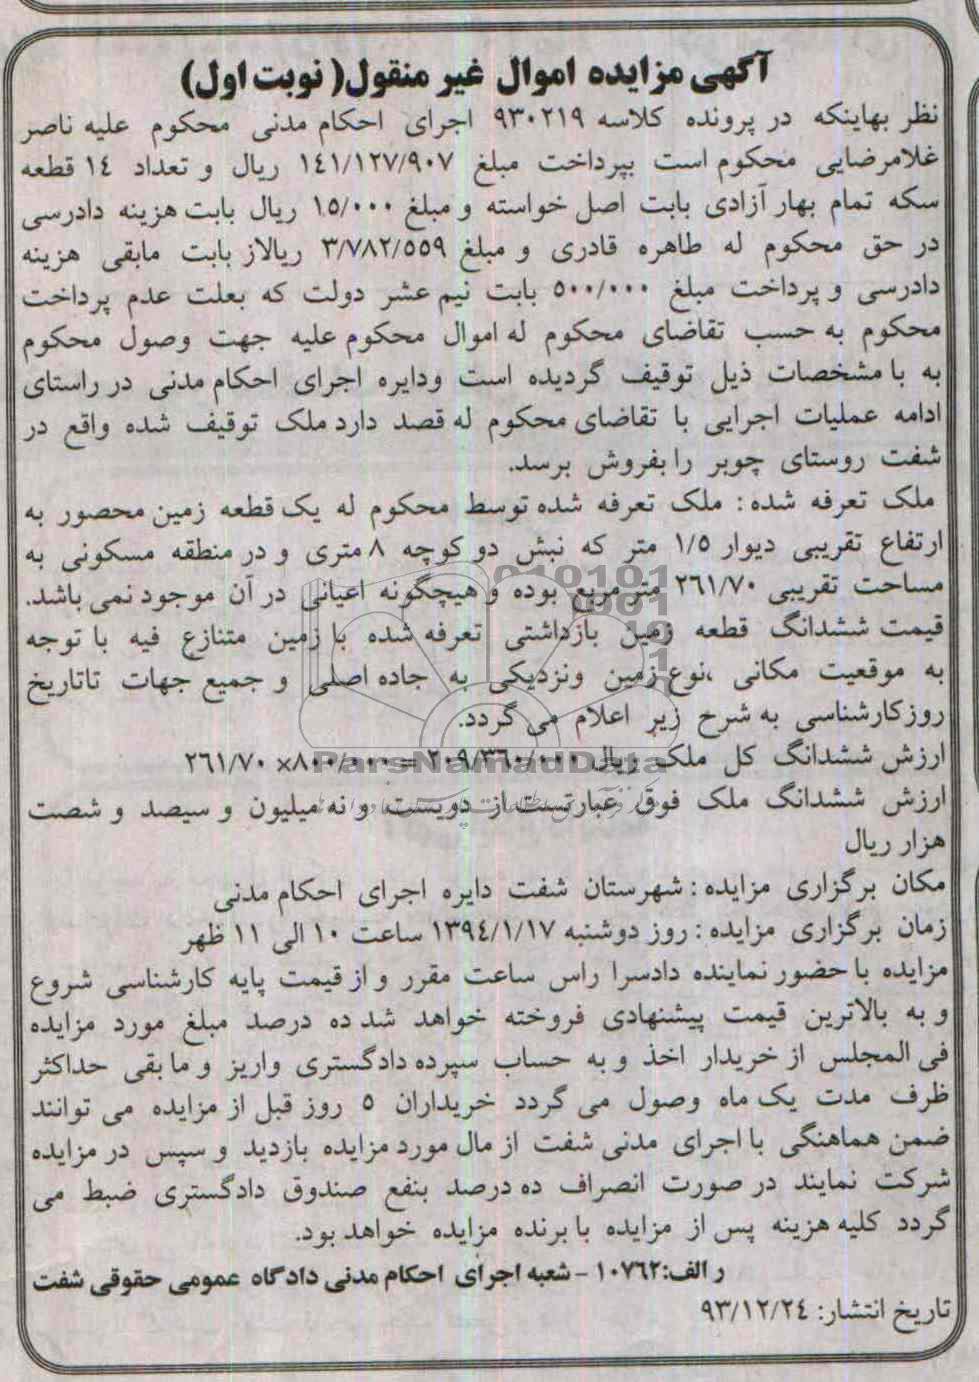 آگهی مزایده اموال غیر منقول( نوبت اول)
نظر بهاینکه در پرونده کلاسه ۹۳۰۲۱۹ اجرای احکام مدنی محکوم علیه ناصر
غلامرضایی محکوم است بپرداخت مبلغ ۱۴۱/۱۲۷/۹۰۷ ریال و تعداد ۱۴ قطعه
سکه تمام بهار آزادی بابت اصل خواسته و مبلغ ۱۵/۰۰۰ ریال بابت هزینه دادرسی
در حق محکوم له طاهره قادری و مبلغ ۳/۷۸۲/۵۵۹ ریالاز بابت مابقی هزینه
دادرسی و پرداخت مبلغ ۵۰۰/۰۰۰ بابت نیم عشر دولت که بعلت عدم پرداخت
محکوم به حسب تقاضای محکوم له اموال محکوم علیه جهت وصول محکوم
به با مشخصات ذیل توقیف گردیده است ودایره اجرای احکام مدنی در راستای
ادامه عملیات اجرایی با تقاضای محکوم له قصد دارد ملک توقیف شده واقع در
شفت روستای چوبر را بفروش برسد.
ملک تعرفه شده : ملک تعرفه شده توسط محکوم له یک قطعه زمین محصور به
ارتفاع تقریبی دیوار ۱/۵ متر که نبش دو کوچه ۸ متری و در منطقه مسکونی به
مساحت تقریبی ۲۶۱/۷۰ متر مربع بوده و هیچگونه اعیانی در آن موجود نمی باشد.
قیمت ششدانگ قطعه زمین بازداشتی تعرفه شده با زمین متنازع فیه با توجه
به موقعیت مکانی ،نوع زمین ونزدیکی به جاده اصلی و جمیع جهات تاتاریخ
روزکارشناسی به شرح زیر اعلام می گردد.
ارزش ششدانگ کل ملک ریال ۲۰۹/۳۶۰/۰۰۰ = ۸۰۰/۰۰۰× ۲۶۱/۷۰
ParsNamadData
ارزش ششدانگ ملک فوق عبارتست از دویست و نه میلیون و سیصد و شصت
هزار ریال
مکان برگزاری مزایده : شهرستان شفت دایره اجرای احکام مدنی
زمان برگزاری مزایده : روز دوشنبه ۱۳۹۴/۱/۱۷ ساعت ۱۰ الی ۱۱ ظهر
مزایده با حضور نماینده دادسرا راس ساعت مقرر و از قیمت پایه کارشناسی شروع
و به بالاترین قیمت پیشنهادی فروخته خواهد شد ده درصد مبلغ مورد مزایده
فی المجلس از خریدار اخذ و به حساب سپرده دادگستری واریز و ما بقی حداکثر
ظرف مدت یک ماه وصول می گردد خریداران ۵ روز قبل از مزایده می توانند
ضمن هماهنگی با اجرای مدنی شفت از مال مورد مزایده بازدید و سپس در مزایده
شرکت نمایند در صورت انصراف ده درصد بنفع صندوق دادگستری ضبط می
گردد کلیه هزینه پس از مزایده با برنده مزایده خواهد بود.
ر الف:۱۰۷۶۲ - شعبه اجرای احکام مدنی دادگاه عمومی حقوقی شفت
تاریخ انتشار: ۹۳/۱۲/۲۴